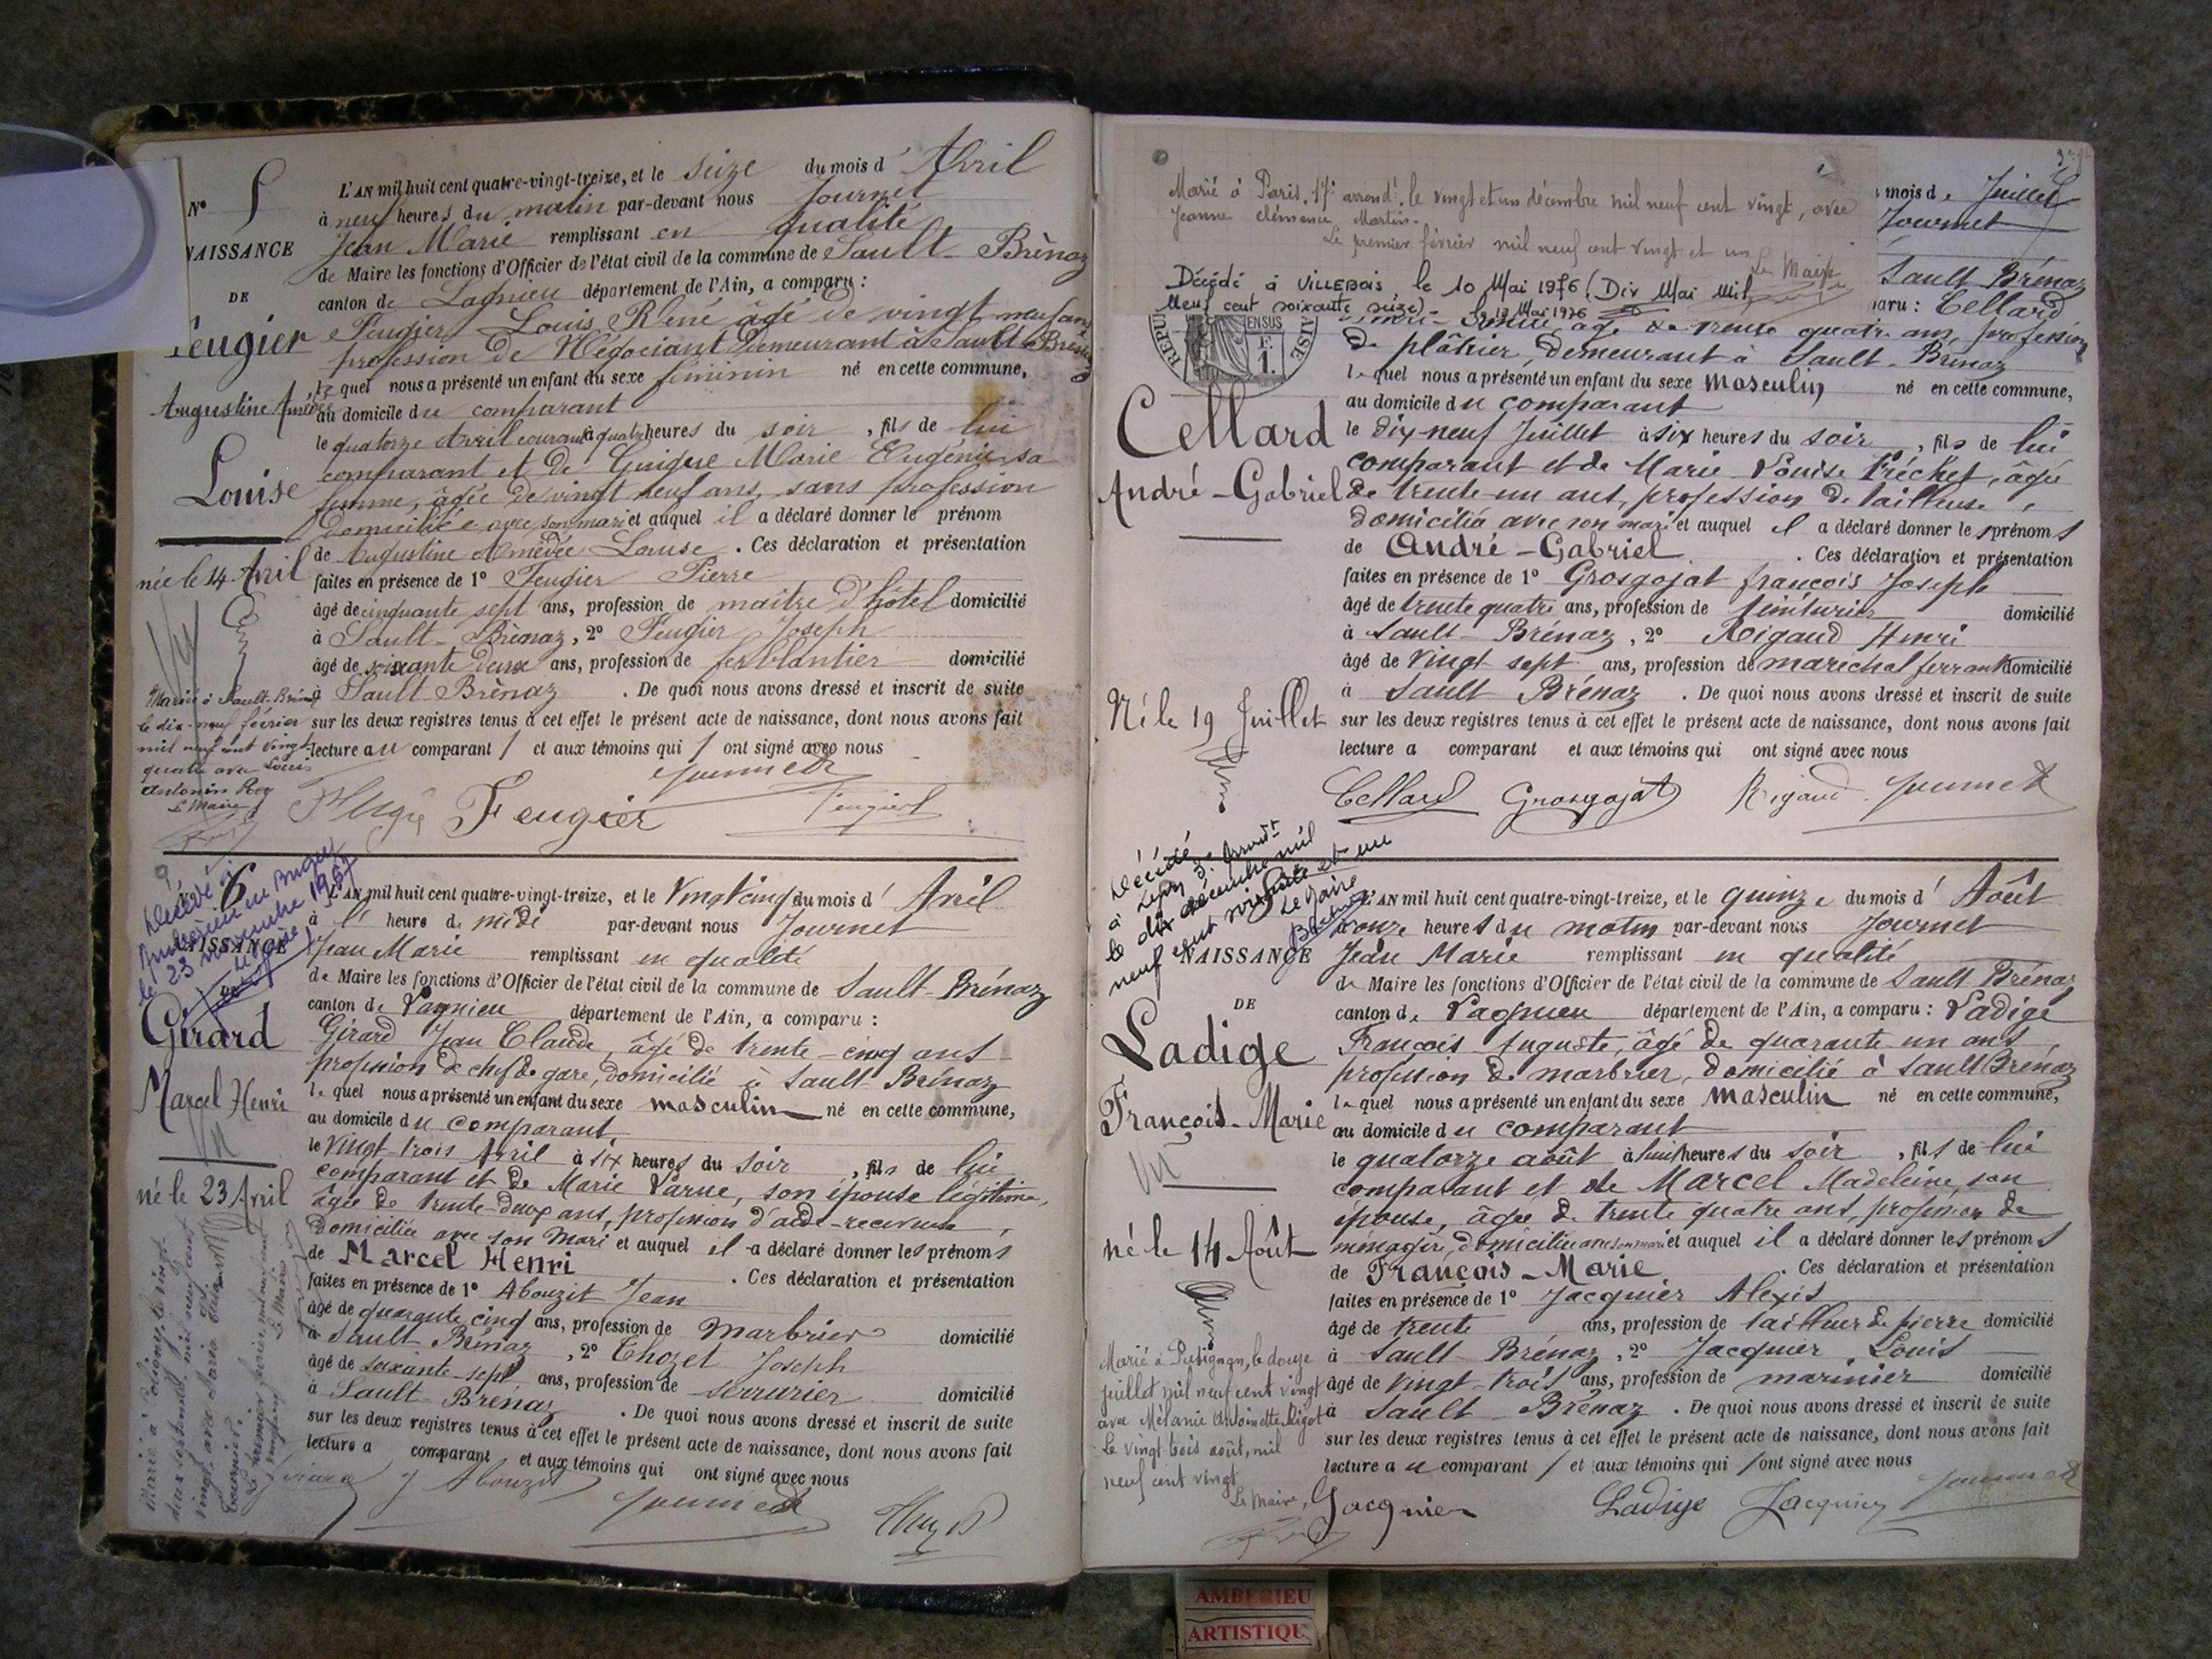 N° 5
NAISSANCE
DE
Feugier
Augustine Amédée
Louise
née le 14 Avril
Marié à Sault-Brénaz
le dix-neuf février
mil neuf cent vingt
quatre avec Louis
Antonin Rey
Le Maire
L'AN mil huit cent quatre-vingt-treize, et le seize du mois d' Avril
à neuf heures du matin par-devant nous Journet
Jean Marie remplissant en qualité
de Maire les fonctions d'Officier de l'état civil de la commune de Sault-Brénaz
canton de Lagnieu département de l'Ain, a comparu :
Feugier Louis René âgé de vingt neuf ans
profession de Négociant demeurant à Sault-Brénaz
le quel nous a présenté un enfant du sexe féminin né en cette commune,
au domicile du comparant
le quatorze Avril courant à quatre heures du soir , fils de lui
comparant et de Guigue Marie Eugénie sa
femme, âgée de vingt neuf ans, sans profession
domiciliée avec son mari et auquel il a déclaré donner le prénom
de Augustine Amédée Louise . Ces déclaration et présentation
faites en présence de 1° Feugier Pierre
âgé de cinquante sept ans, profession de maître d'hôtel domicilié
à Sault-Brénaz, 2° Feugier Joseph
âgé de soixante deux ans, profession de ferblantier domicilié
à Sault Brénaz . De quoi nous avons dressé et inscrit de suite
sur les deux registres tenus à cet effet le présent acte de naissance, dont nous avons fait
lecture au comparant et aux témoins qui ont signé avec nous
Journet
Feugier Feugier
6
Décédé à
le 23 novembre 1967
NAISSANCE
Girard
Marcel Henri
né le 23 Avril
L'AN mil huit cent quatre-vingt-treize, et le Vingt cinq du mois d' Avril
à l' heure de midi par-devant nous Journet
Jean Marie remplissant en qualité
de Maire les fonctions d'Officier de l'état civil de la commune de Sault-Brénaz
canton de Lagnieu département de l'Ain, a comparu :
Girard Jean Claude, âgé de trente-cinq ans
profession de chef de gare, domicilié à Sault-Brénaz
le quel nous a présenté un enfant du sexe masculin né en cette commune,
au domicile du comparant
le Vingt-trois Avril à six heures du soir , fils de lui
comparant et de Marie Varne, son épouse légitime,
âgée de trente-deux ans, profession d'aide-receveuse,
domiciliée avec son mari et auquel il a déclaré donner les prénoms
de Marcel Henri . Ces déclaration et présentation
faites en présence de 1° Abouzit Jean
âgé de quarante cinq ans, profession de Marbrier domicilié
à Sault Brénaz , 2° Chozet Joseph
âgé de soixante-sept ans, profession de serrurier domicilié
à Sault-Brénaz . De quoi nous avons dressé et inscrit de suite
sur les deux registres tenus à cet effet le présent acte de naissance, dont nous avons fait
lecture a comparant et aux témoins qui ont signé avec nous
Girard J Abouzit Journet
Marié à Paris, 17e arrondt le vingt et un décembre mil neuf cent vingt, avec
Jeanne Clémence Martin.
Le premier février mil neuf cent vingt et un Le Maire
Décédé à VILLEBOIS le 10 Mai 1976 (Dix Mai Mil
Neuf cent soixante seize). Le 12 Mai 1976
mois de Juillet
Journet
Sault Brénaz
aru : Cellard
âgé de trente quatre ans, profession
de plâtrier, demeurant à Sault-Brénaz
le quel nous a présenté un enfant du sexe masculin né en cette commune,
au domicile du comparant
Cellard
André-Gabriel
Né le 19 Juillet
le dix-neuf Juillet à six heures du soir , fils de lui
comparant et de Marie Louise Fréchet, âgée
de trente-un ans, profession de tailleuse,
domiciliée avec son mari et auquel il a déclaré donner les prénoms
de André-Gabriel . Ces déclaration et présentation
faites en présence de 1° Grosgojat françois Joseph
âgé de trente quatre ans, profession de domicilié
à Sault-Brénaz, 2° Rigaud Henri
âgé de Vingt sept ans, profession de maréchal ferrant domicilié
à Sault Brénaz . De quoi nous avons dressé et inscrit de suite
sur les deux registres tenus à cet effet le présent acte de naissance, dont nous avons fait
lecture a comparant et aux témoins qui ont signé avec nous
Cellard Grosgojat Rigaud Journet
Décédé
à Lyon 3e Arrondt
le dix décembre mil
neuf cent soixante et un
Le Maire
NAISSANCE
DE
Ladige
François-Marie
né le 14 Août
Marié à Pusignan, le douze
juillet mil neuf cent vingt
avec Mélanie Antoinette Rigot
Le vingt trois août, mil
neuf cent vingt
Le Maire,
L'AN mil huit cent quatre-vingt-treize, et le quinze du mois d' Août
à onze heures du matin par-devant nous Journet
Jean Marie remplissant en qualité
de Maire les fonctions d'Officier de l'état civil de la commune de Sault Brénaz
canton de Lagnieu département de l'Ain, a comparu : Ladige
François Auguste, âgé de quarante un ans
profession de marbrier, domicilié à Sault Brénaz
le quel nous a présenté un enfant du sexe masculin né en cette commune,
au domicile du comparant
le quatorze août à huit heures du soir , fils de lui
comparant et de Marcel Madeleine, son
épouse, âgée de trente quatre ans, profession de
ménagère, domiciliée avec son mari et auquel il a déclaré donner les prénoms
de François-Marie . Ces déclaration et présentation
faites en présence de 1° Jacquier Alexis
âgé de trente ans, profession de tailleur de pierre domicilié
à Sault-Brénaz, 2° Jacquier Louis
âgé de Vingt-trois ans, profession de marinier domicilié
à Sault-Brénaz . De quoi nous avons dressé et inscrit de suite
sur les deux registres tenus à cet effet le présent acte de naissance, dont nous avons fait
lecture au comparant et aux témoins qui ont signé avec nous
Jacquier Ladige Jacquier Journet
AMBERIEU
ARTISTIQU